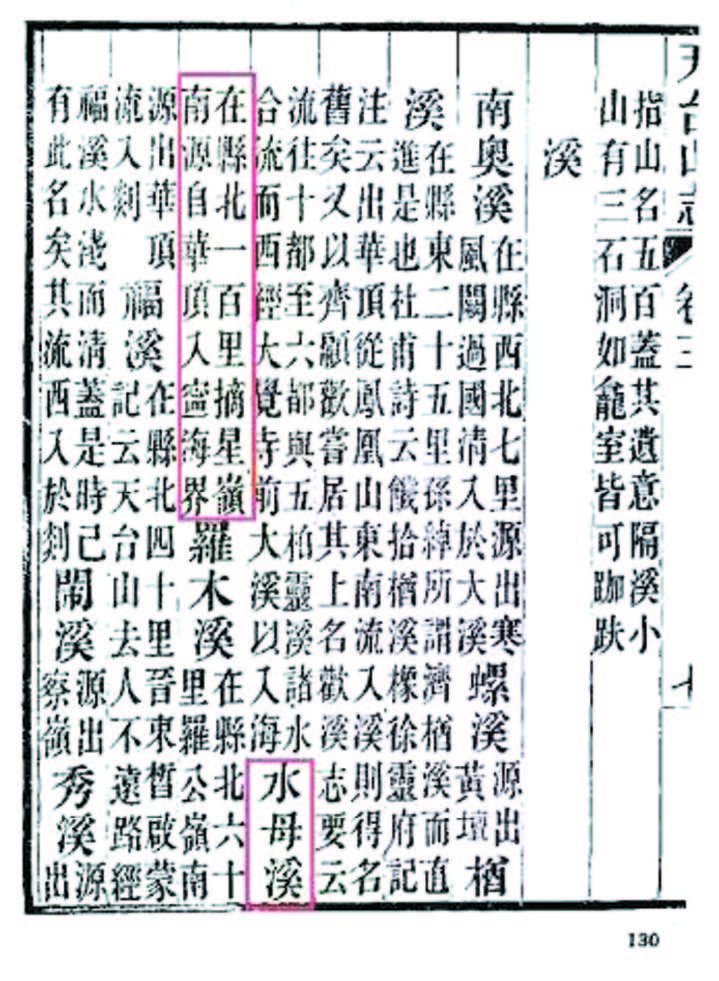 天台山志 卷三 七
指山名五百蓋其遺意隔溪小
山有三石洞如龕室皆可跏趺
溪
南奧溪
在縣西北七里源出寒
風闕過國清入於大溪
螺溪
源出
黃壇
楢
溪
在縣東二十五里孫綽所謂濟楢溪而直
進是也杜甫詩云餞拾楢溪橡徐靈府記
注云出華頂從鳳凰山東南流入溪則得名
舊矣又以齊顧歡嘗居其上名歡溪志要云
流往十都至六都與五柏靈溪諸水
合流而西經大覺寺前大溪以入海
水母溪
在縣北一百里摘星嶺
南源自華頂入寧海界
羅木溪
在縣北六十
里羅公嶺南
源出華頂
流入剡
福溪
在縣北四十里晉東晳啟蒙
記云天台山去人不遠路經
福溪水淺而清蓋是時已
有此名矣其流西入於剡
閙溪
源出
察嶺
秀溪
源
出
130